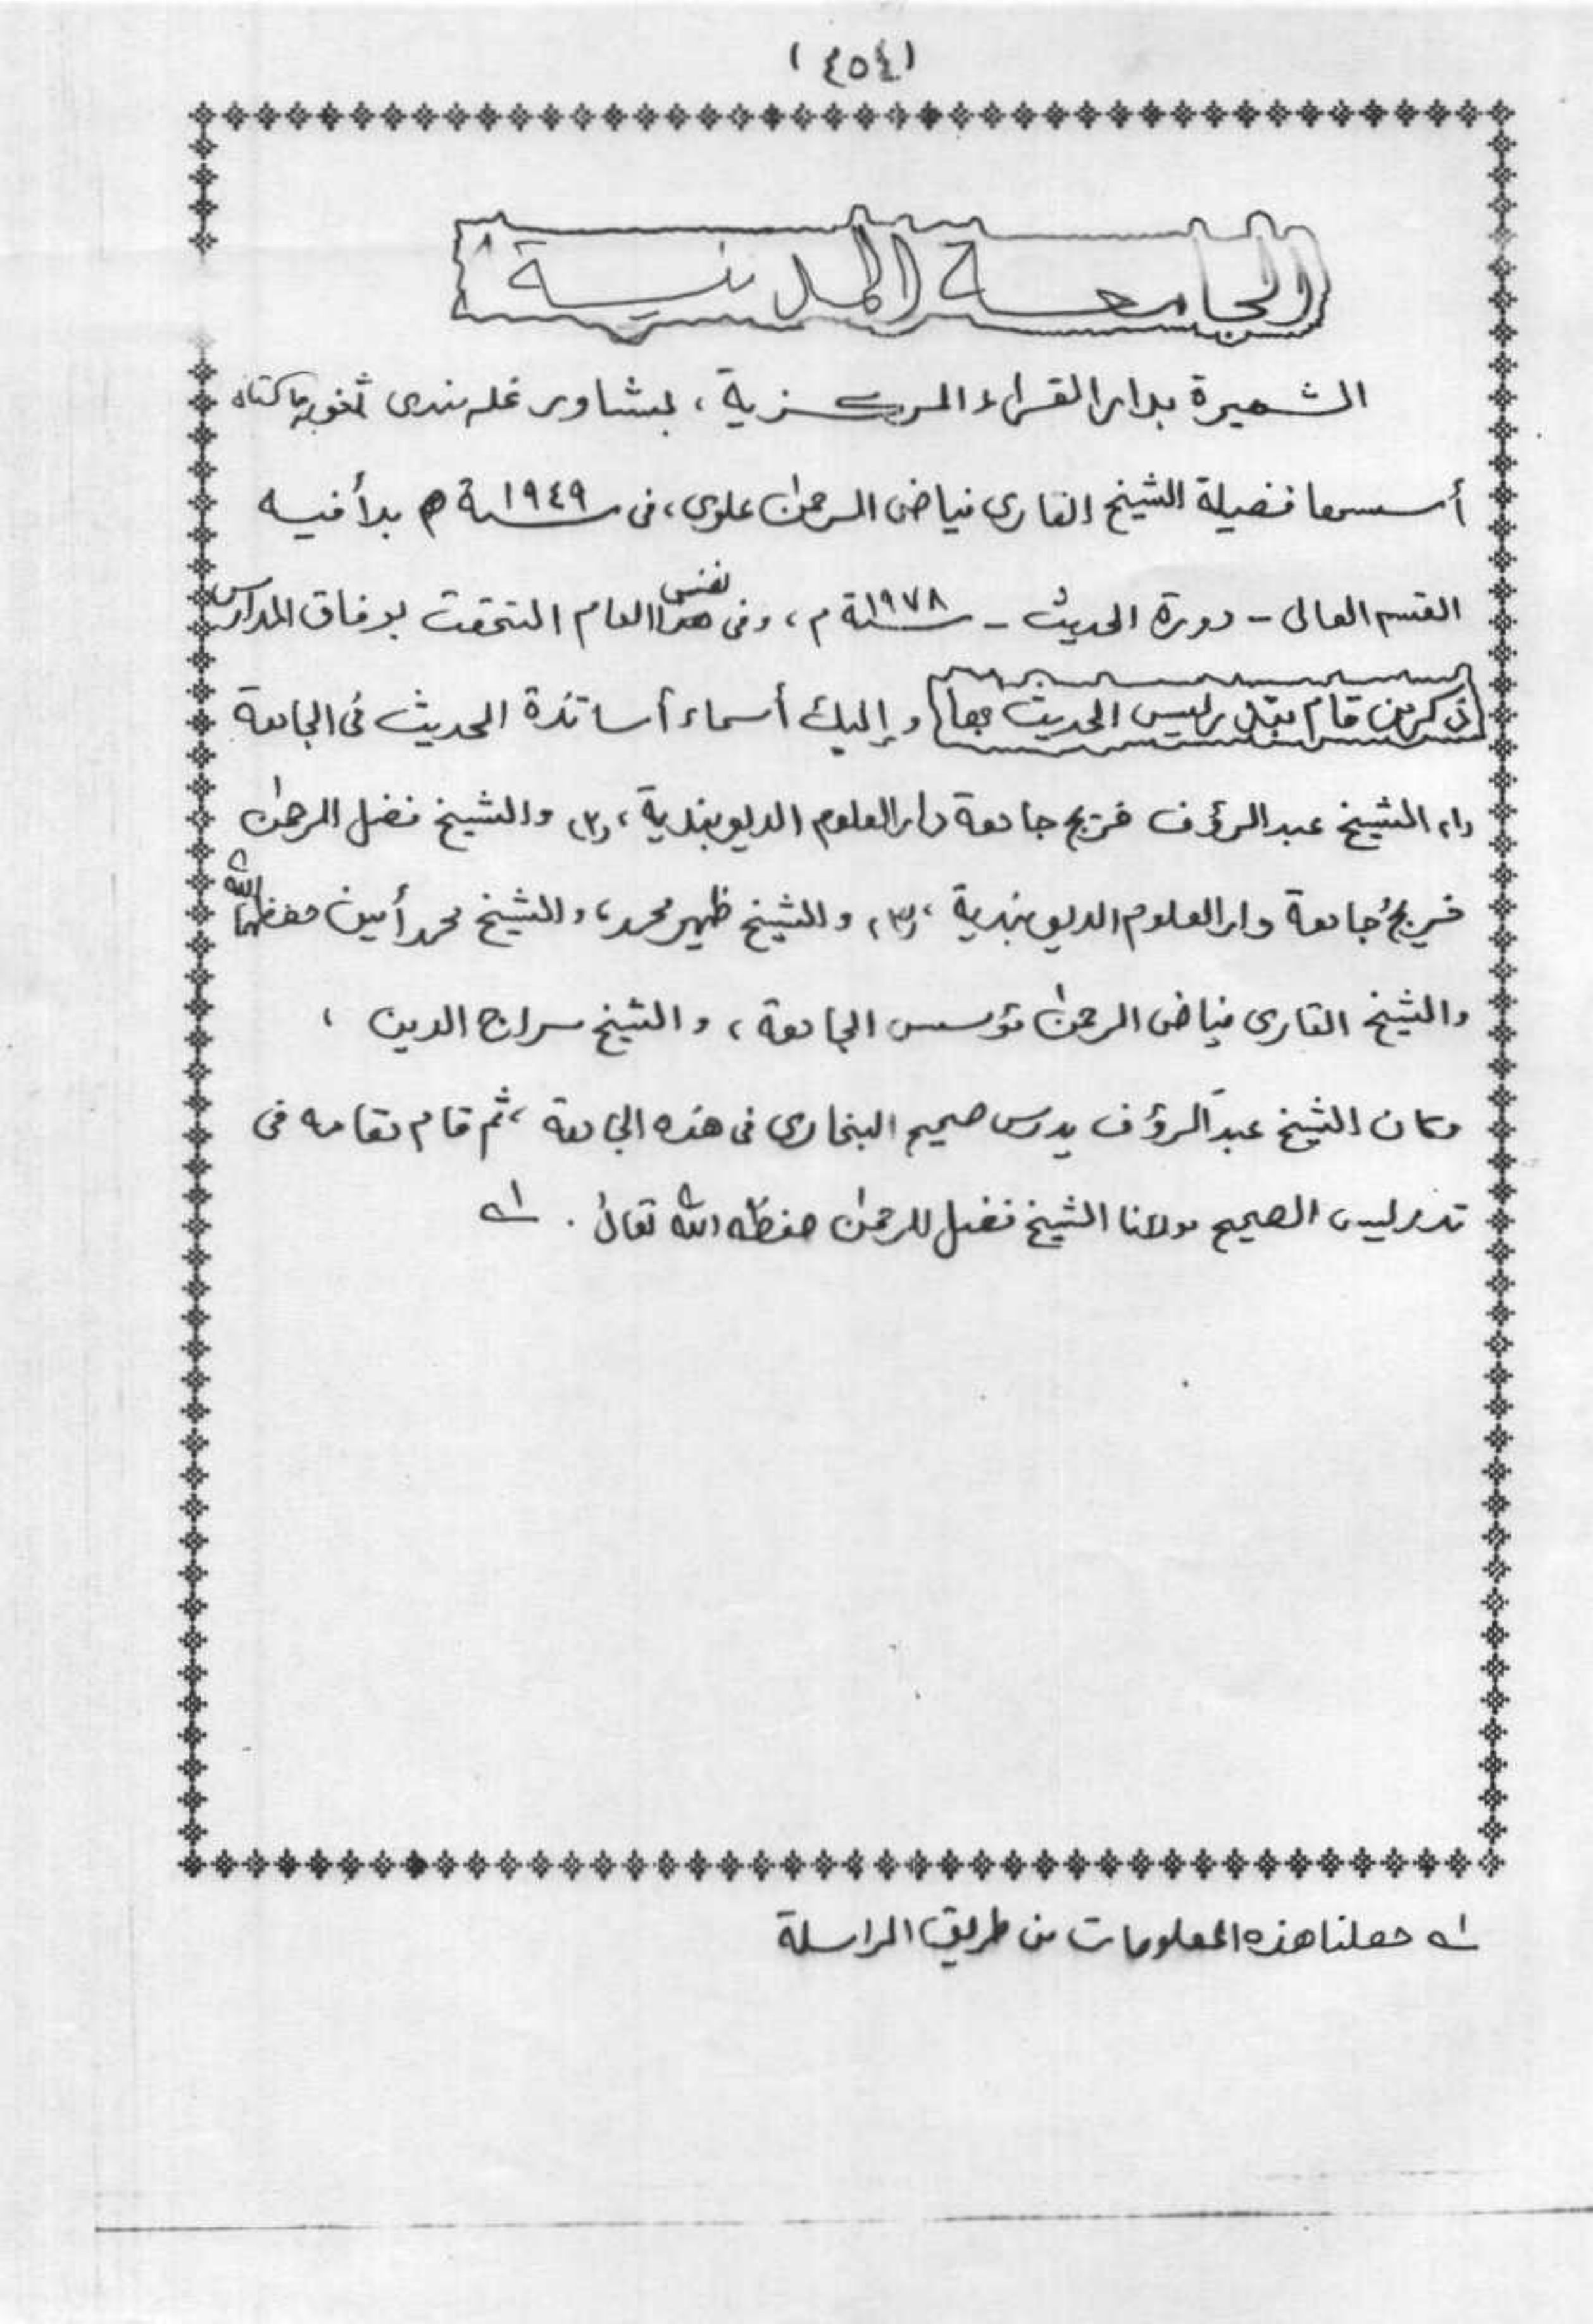 (٤٥٤)
الجامعة المدنية
الشهيرة بدار القراء المركزية ، بشاور غله مندى
أسسها فضيلة الشيخ القارى فياض الرحمن علوي، فى سنة ١٩٤٩ م بدأ فيه
القسم العالى - دورة الحديث - سنة ١٩٧٨ م ، وفى نفس هذا العام التحقت بوفاق المدارس
ذكر من قام بتدريس الحديث بها و إليك أسماء أساتذة الحديث فى الجامعة
(١) الشيخ عبد الرؤف خريج جامعة دار العلوم الديوبندية ، (٢) والشيخ فضل الرحمن
خريج جامعة دار العلوم الديوبندية ، (٣) والشيخ ظهير محمد ، والشيخ محمد أمين حفظهما الله
والشيخ القارى فياض الرحمن مؤسس الجامعة ، والشيخ سراج الدين ،
وكان الشيخ عبد الرؤف يدرس صحيح البخارى فى هذه الجامعة ، ثم قام مقامه فى
تدريس الصحيح مولانا الشيخ فضل الرحمن حفظه الله تعالى . ١ـه
١ـه حصلنا هذه المعلومات من طريق المراسلة